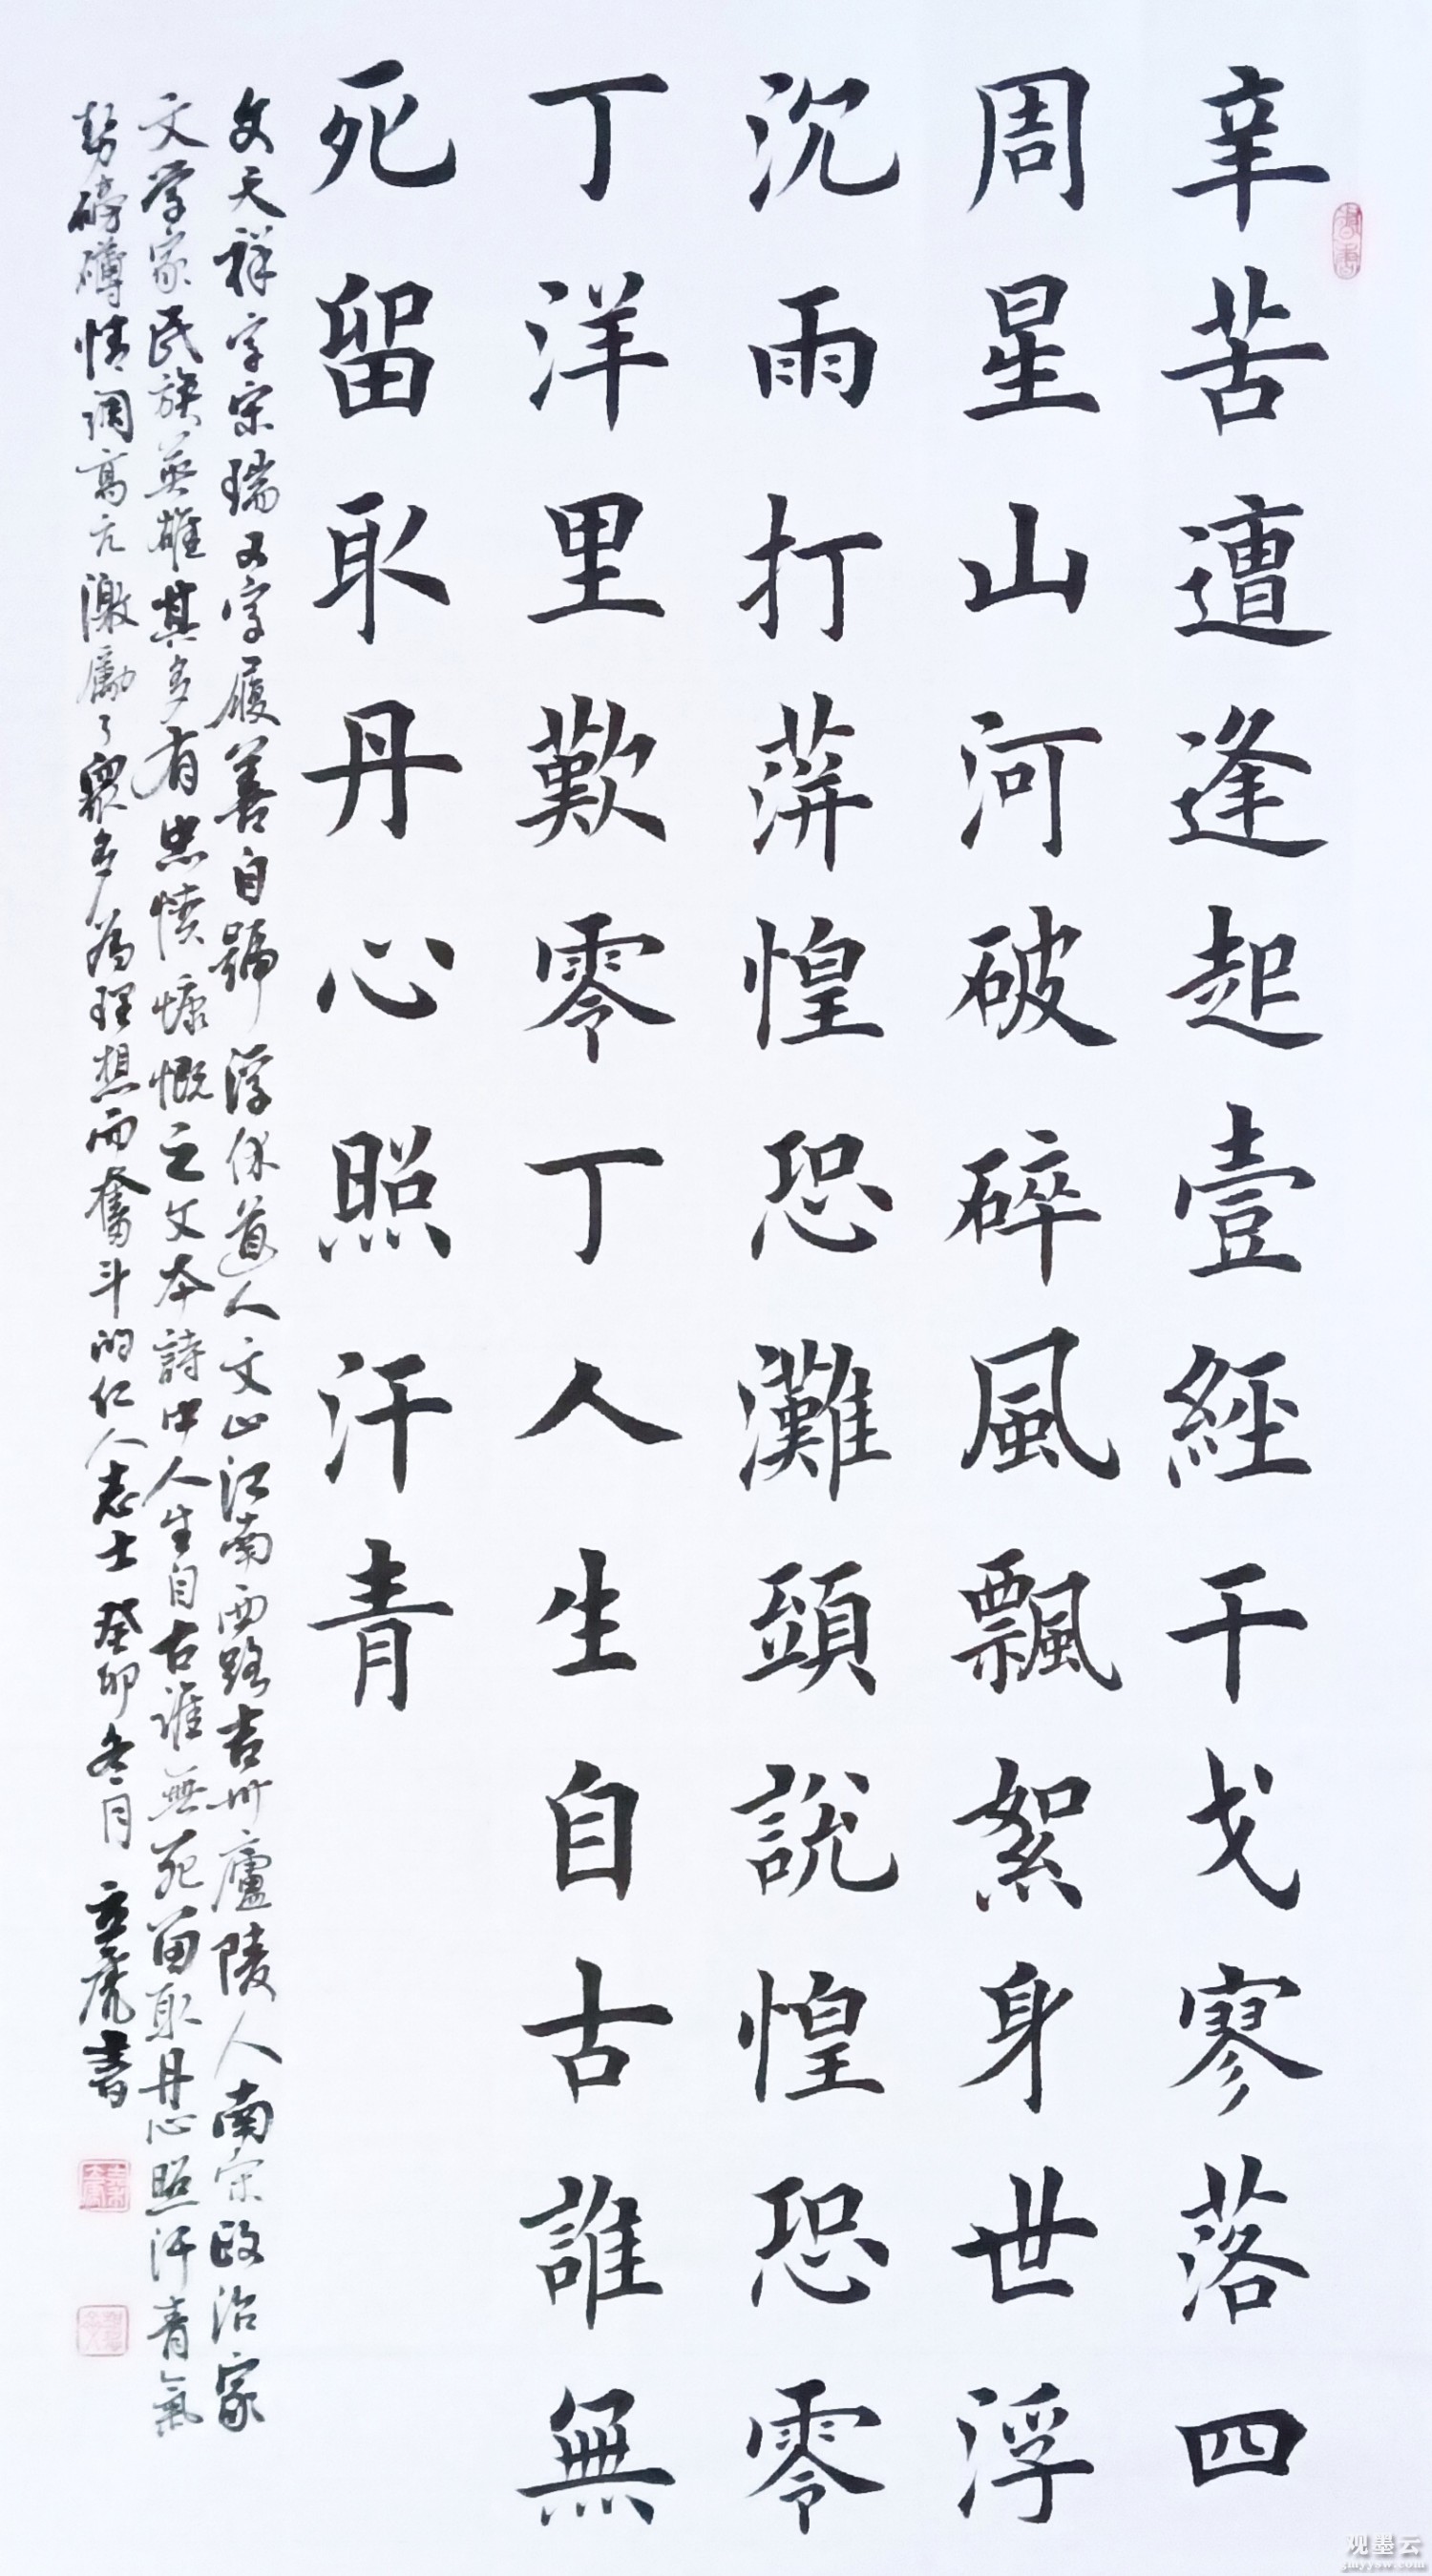 辛苦遭逢起壹經干戈寥落四
周星山河破碎風飄絮身世浮
沉雨打萍惶恐灘頭說惶恐零
丁洋里歎零丁人生自古誰無
死留取丹心照汗青
文天祥字宋瑞又字履善自號浮休道人文山江南西路吉州廬陵人南宋政治家
文學家民族英雄其多有忠憤慷慨之文本詩中人生自古誰無死留取丹心照汗青氣
勢磅礴情調高亢激勵了眾多為理想而奮斗的仁人志士癸卯冬月立虎書
观墨云
gmyysw.com